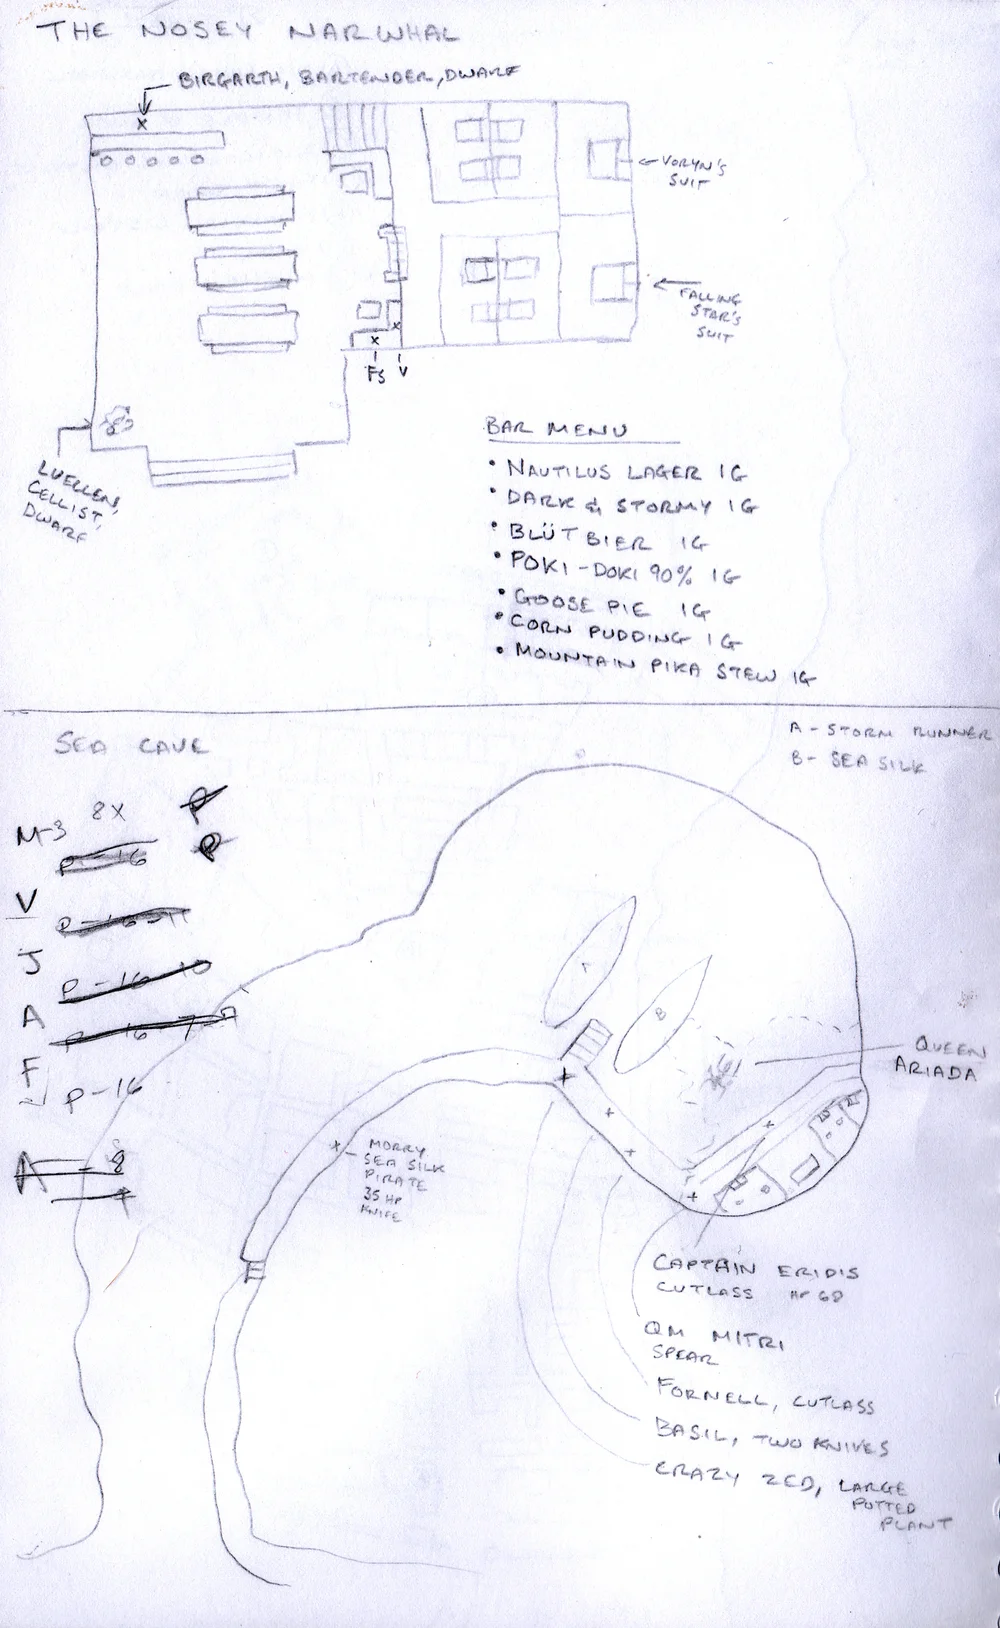 THE NOSEY NARWHAL
BIRGARTH, BARTENDER, DWARF
VORYN'S
SUIT
FALLING
STAR'S
SUIT
FS V
LUELLEN,
CELLIST,
DWARF
BAR MENU
• NAUTILUS LAGER 1G
• DARK & STORMY 1G
• BLÜT BIER 1G
• POKI-DOKI 90% 1G
• GOOSE PIE 1G
• CORN PUDDING 1G
• MOUNTAIN PIKA STEW 1G
SEA CAVE
A - STORM RUNNER
B - SEA SILK
8X P
M-3
P-16 P
V
J
P-16 10
A
F
P-16
A 8
A
B
QUEEN
ARIADA
MORRY
SEA SILK
PIRATE
35 HP
KNIFE
CAPTAIN ERIDIS
CUTLASS HP 60
QM MITRI
SPEAR
FORNELL, CUTLASS
BASIL, TWO KNIVES
CRAZY ZED, LARGE
POTTED
PLANT